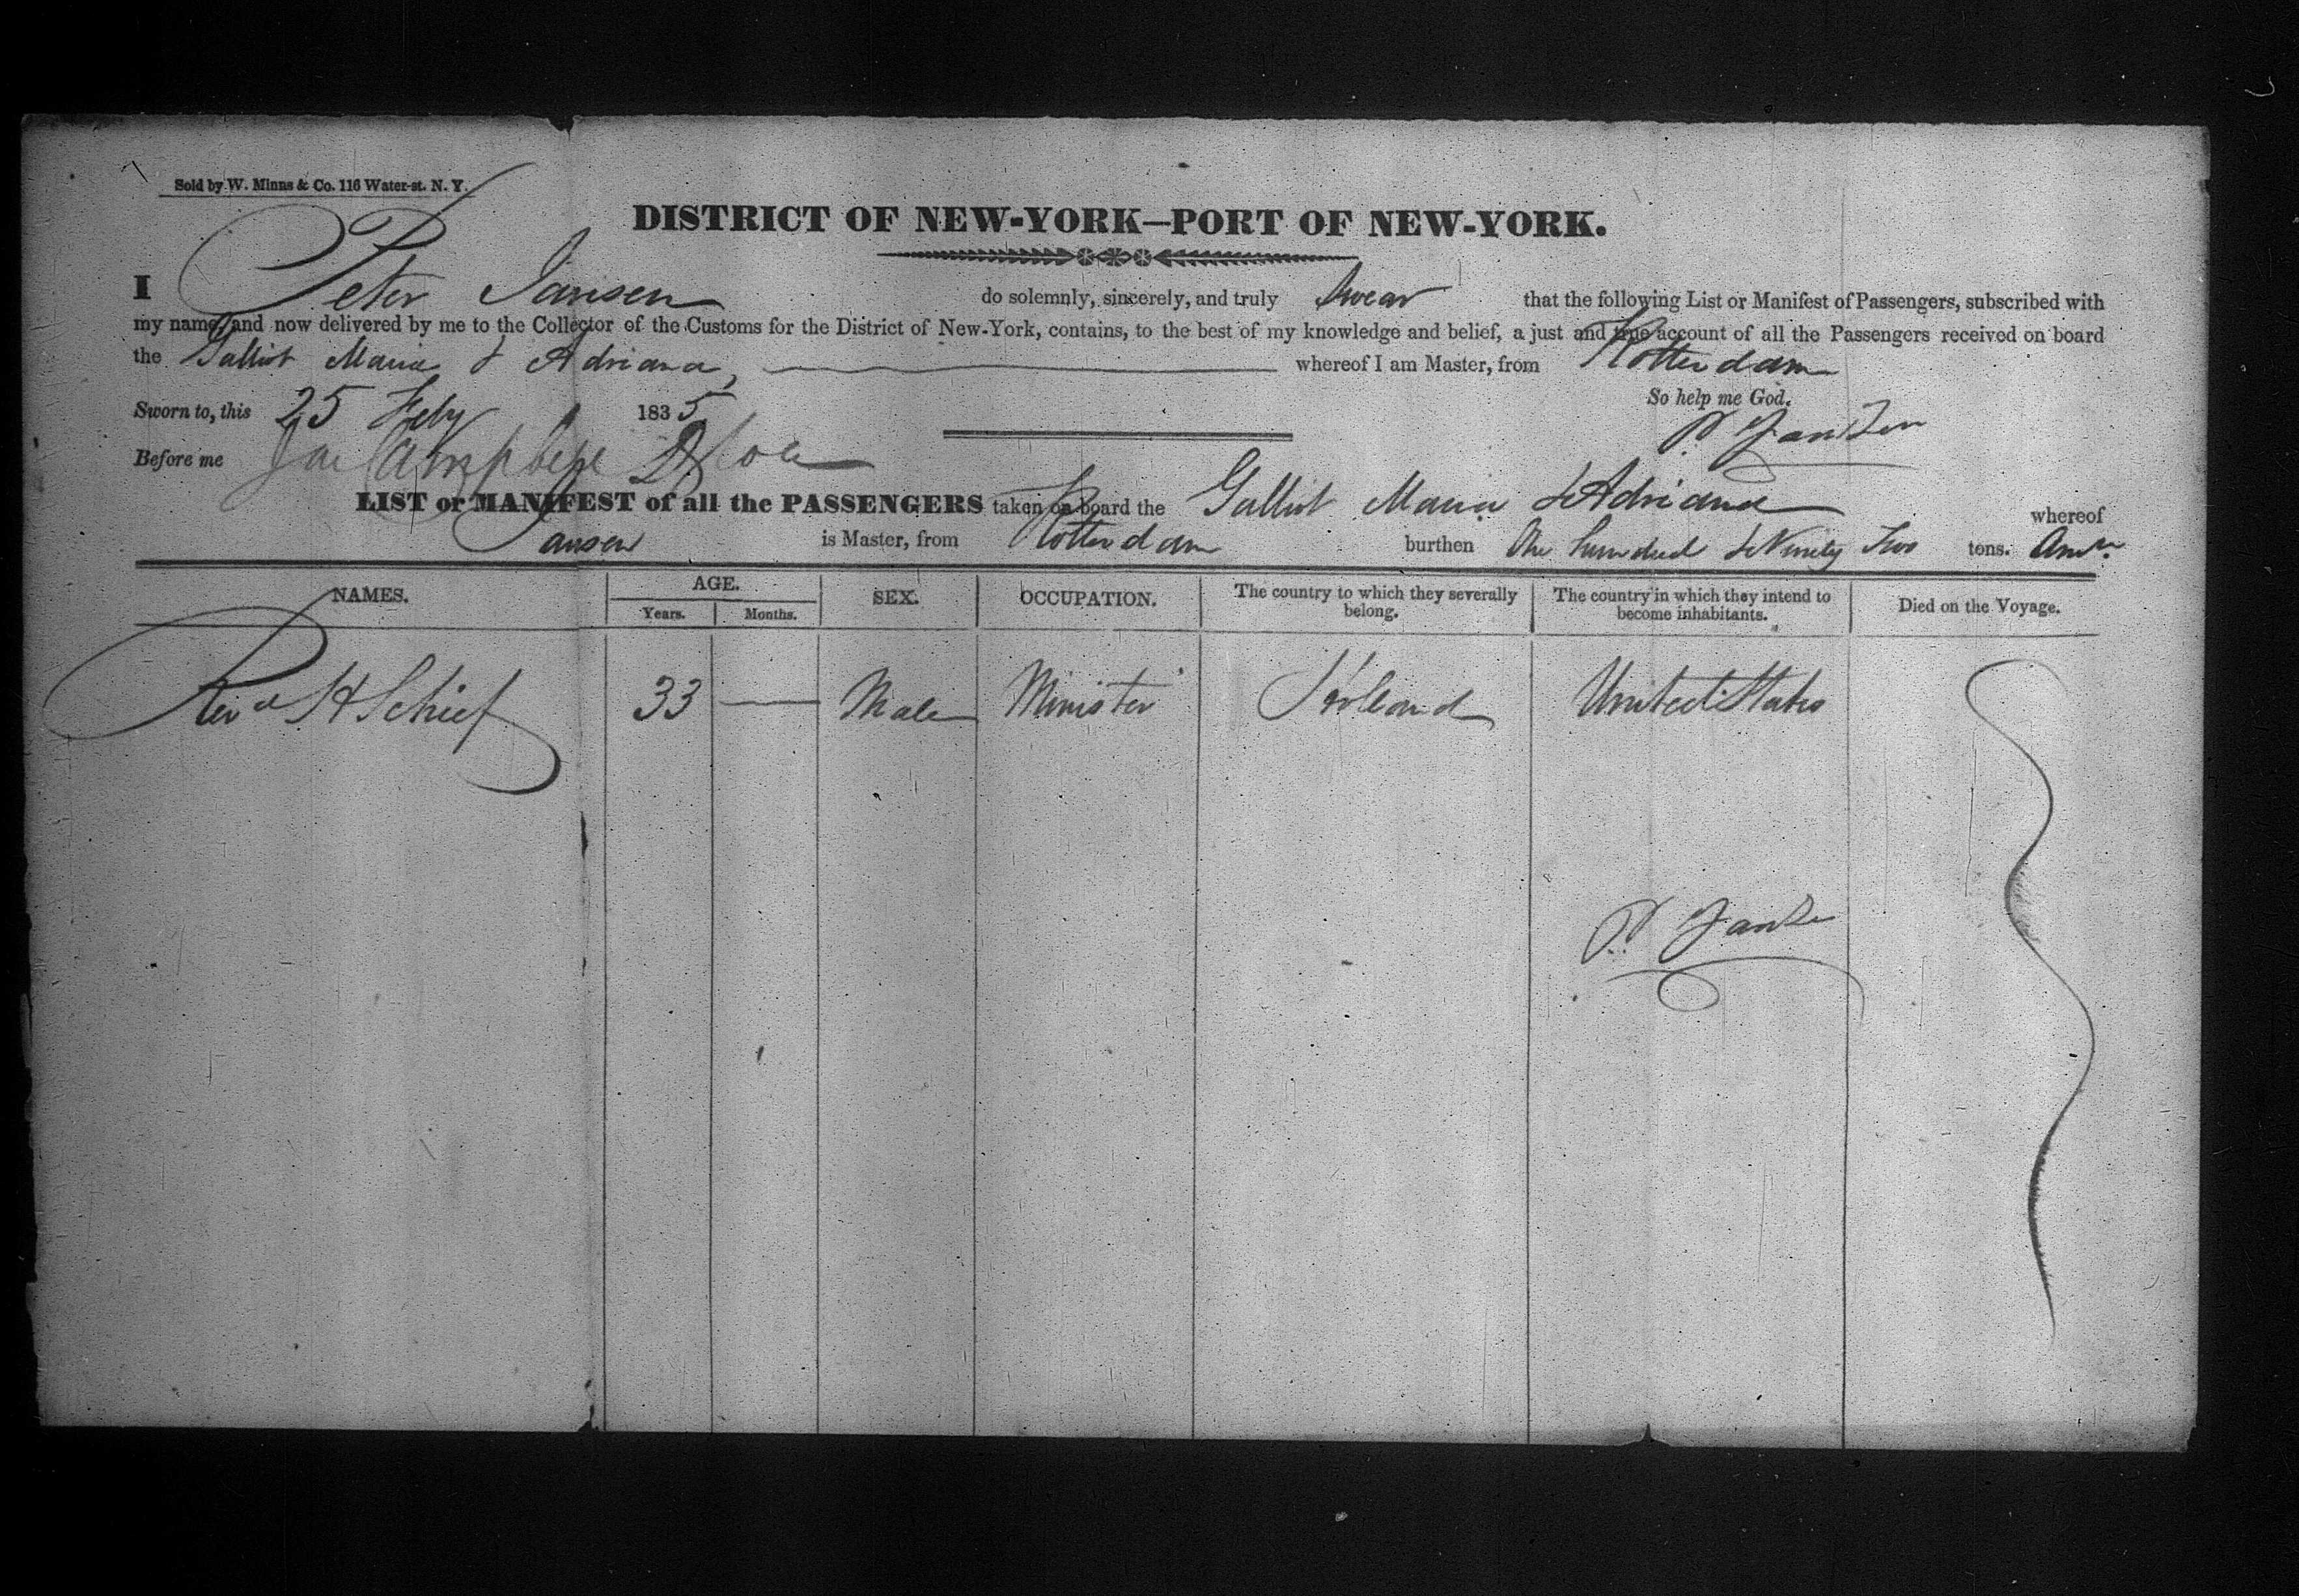 Sold by W. Minns & Co. 116 Water-st. N. Y.
DISTRICT OF NEW-YORK—PORT OF NEW-YORK.
I Peter Jansen do solemnly, sincerely, and truly swear that the following List or Manifest of Passengers, subscribed with
my name, and now delivered by me to the Collector of the Customs for the District of New-York, contains, to the best of my knowledge and belief, a just and true account of all the Passengers received on board
the Galliot Maria & Adriana, whereof I am Master, from Rotterdam
So help me God.
Sworn to, this 25 Feby 1835
P. Jansen
Before me Campbell
LIST or MANIFEST of all the PASSENGERS taken on board the Galliot Maria & Adriana whereof
Jansen is Master, from Rotterdam burthen One hundred & Ninety Two tons.
NAMES. AGE. SEX. OCCUPATION. The country to which they severally belong. The country in which they intend to become inhabitants. Died on the Voyage.
Years. Months.
Revd H Schief 33 — Male Minister Holland United States